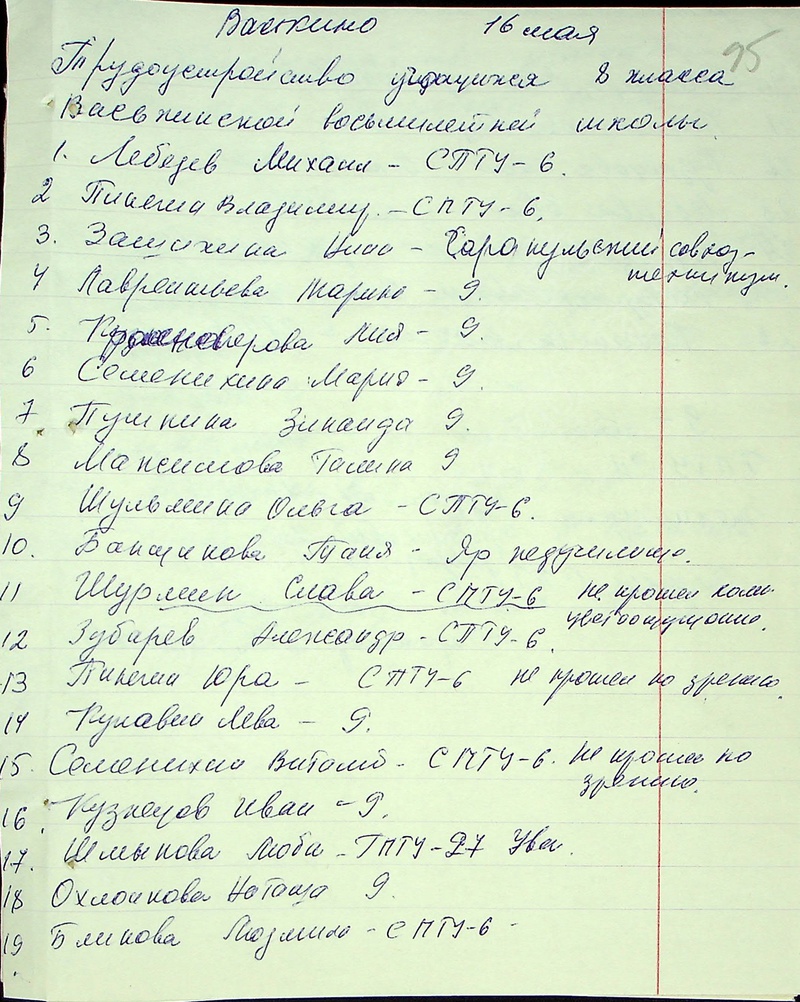 Васькино 16 мая
95
Трудоустройство учащихся 8 класса
Васькинской восьмилетней школы
1. Лебедев Михаил - СПТУ-6.
2 Пинегин Владимир. - СПТУ-6.
3. Зашихина Нина - Сарапульский совхоз-
техникум.
4 Лаврентьева Марина - 9.
5. Лия - 9.
6 Семенихина Мария - 9.
7 Пушкина Зинаида 9.
8 Максимова Галина 9
9 Шульмина Ольга - СПТУ-6.
10. Банщикова Таня - Яр педучилище.
11 Шурмин Слава - СПТУ-6 не прошел ком.
цветоощущение.
12 Зубарев Александр - СПТУ-6.
13 Пинегин Юра - СПТУ-6 не прошел по зрению.
14 Кунавин Лева - 9.
15. Семенихин Виталий - СПТУ-6. Не прошел по
зрению.
16. Кузнецов Иван - 9.
17. Шмыкова Люба - ГПТУ-27 Ува.
18 Охлопкова Наташа 9.
19 Блинова Людмила - СПТУ-6 -